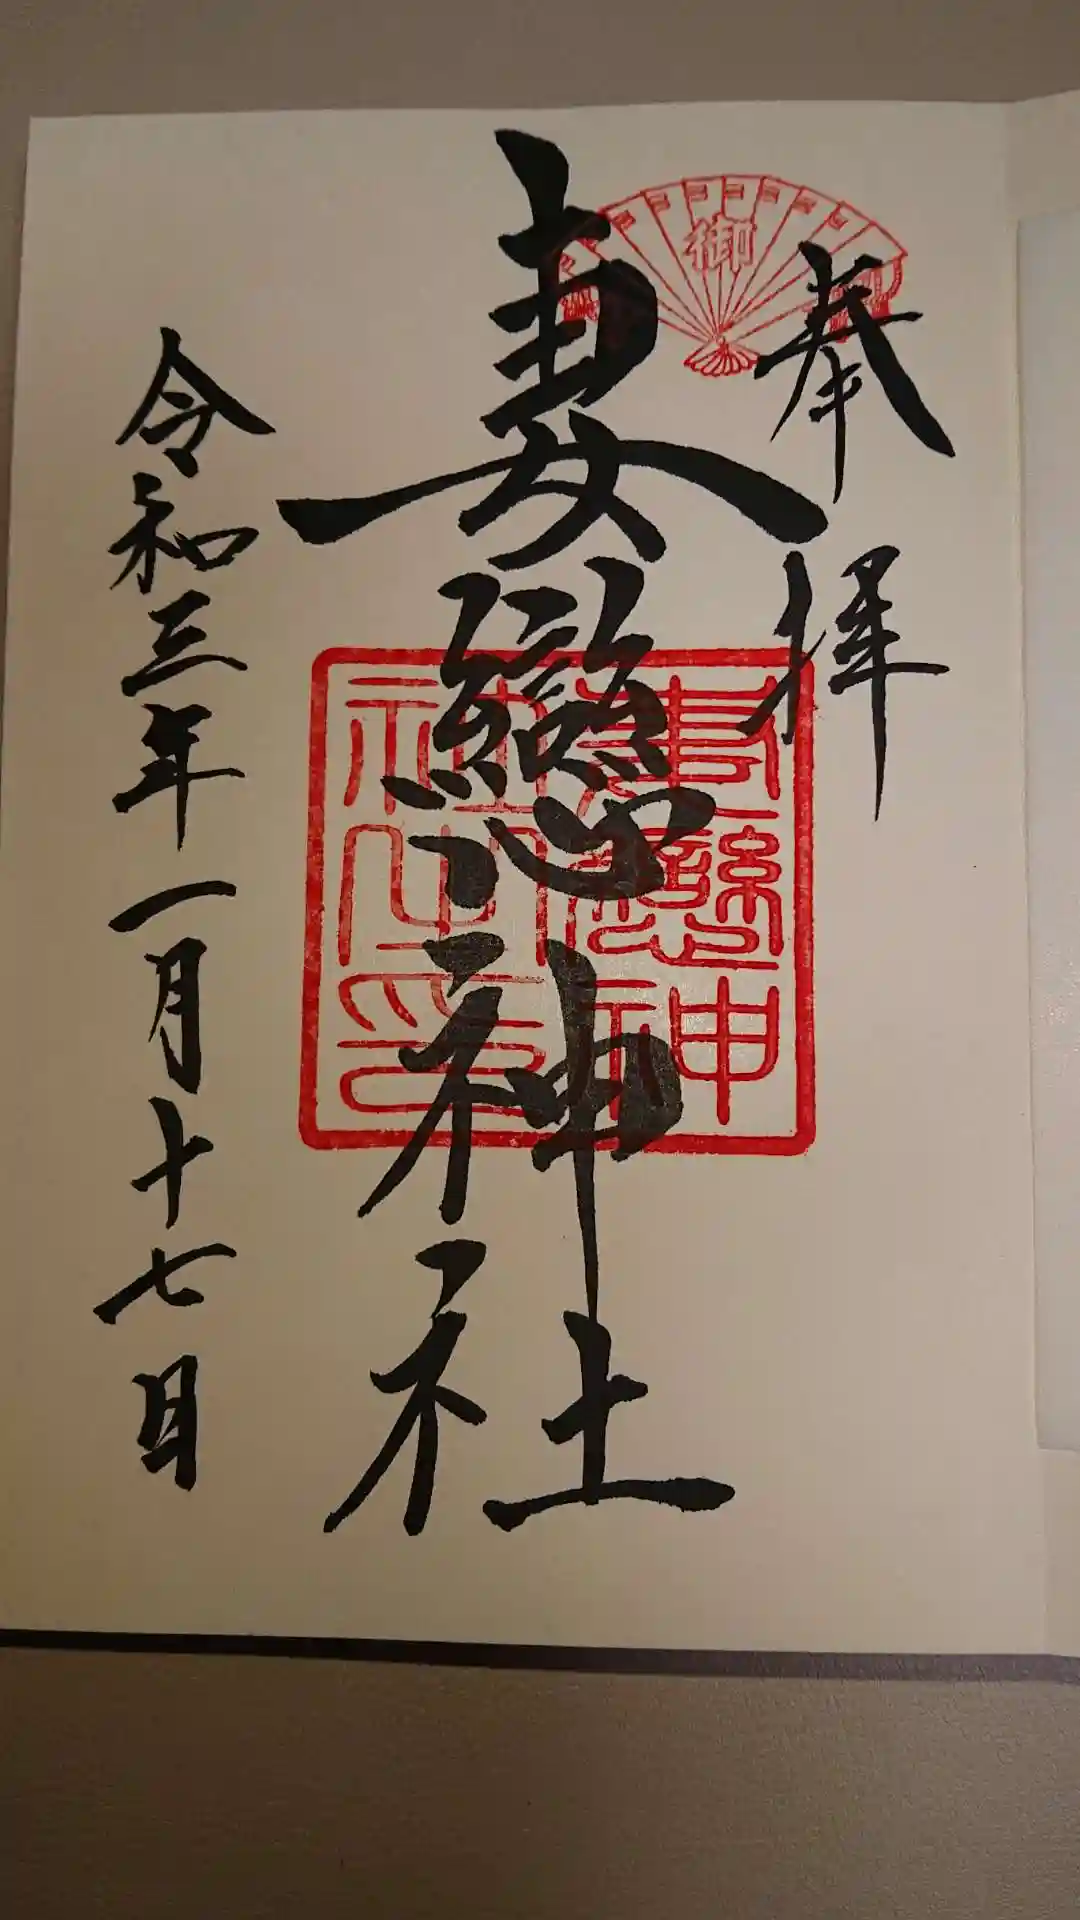 奉拝
御
妻戀神社
妻戀神
社之印
令和三年一月十七日